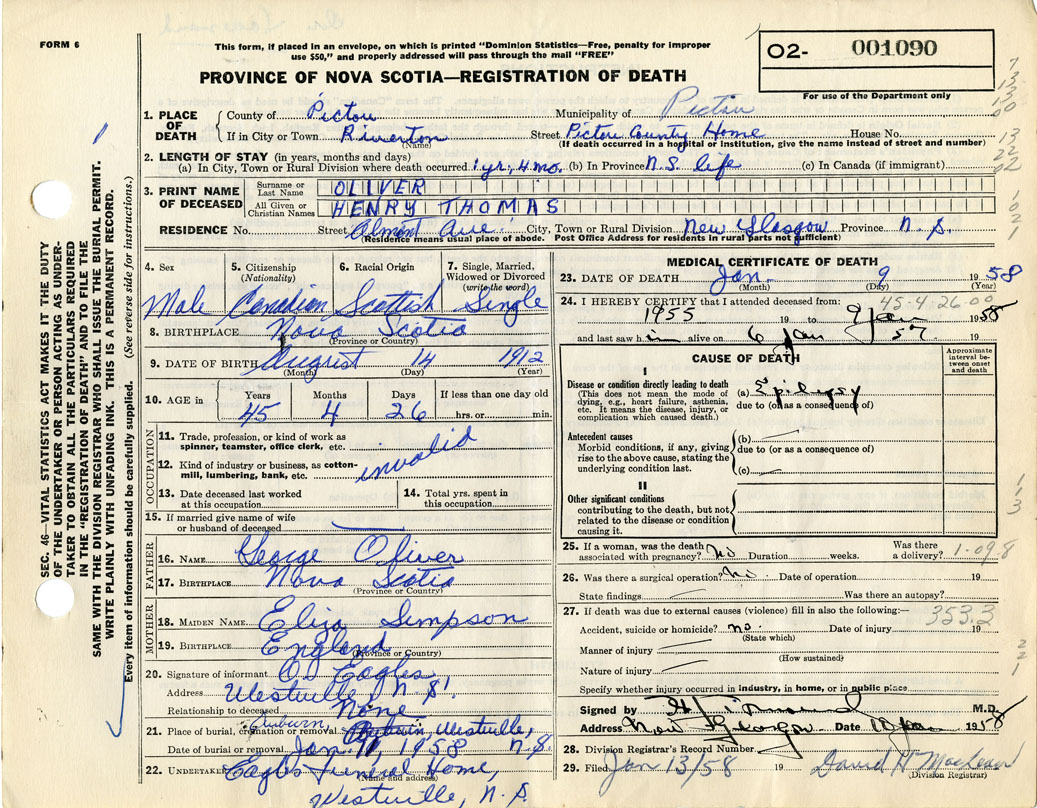 FORM 6
This form, if placed in an envelope, on which is printed "Dominion Statistics—Free, penalty for improper
use $50," and properly addressed will pass through the mail "FREE"
PROVINCE OF NOVA SCOTIA—REGISTRATION OF DEATH
O2- 001090
For use of the Department only
SEC. 46—VITAL STATISTICS ACT MAKES IT THE DUTY
OF THE UNDERTAKER OR PERSON ACTING AS UNDER-
TAKER TO OBTAIN ALL THE PARTICULARS REQUIRED
IN THE "REGISTRATION OF DEATH" AND TO FILE THE
SAME WITH THE DIVISION REGISTRAR WHO SHALL ISSUE THE BURIAL PERMIT.
WRITE PLAINLY WITH UNFADING INK. THIS IS A PERMANENT RECORD.
Every item of information should be carefully supplied. (See reverse side for instructions.)
1. PLACE OF DEATH
County of Pictou Municipality of Pictou
If in City or Town Riverton Street Pictou County Home House No.
(Name) (If death occurred in a hospital or institution, give the name instead of street and number)
2. LENGTH OF STAY (in years, months and days)
(a) In City, Town or Rural Division where death occurred 1 yr, 4 mo. (b) In Province N.S. life (c) In Canada (if immigrant)
3. PRINT NAME OF DECEASED
Surname or Last Name OLIVER
All Given or Christian Names HENRY THOMAS
RESIDENCE No. Street Almont Ave. City, Town or Rural Division New Glasgow Province N.S.
(Residence means usual place of abode. Post Office Address for residents in rural parts not sufficient)
4. Sex 5. Citizenship (Nationality) 6. Racial Origin 7. Single, Married, Widowed or Divorced (write the word)
Male Canadian Scottish Single
8. BIRTHPLACE Nova Scotia
(Province or Country)
9. DATE OF BIRTH August 14 1912
(Month) (Day) (Year)
10. AGE in Years Months Days If less than one day old
45 4 26 hrs. or min.
OCCUPATION
11. Trade, profession, or kind of work as
spinner, teamster, office clerk, etc. invalid
12. Kind of industry or business, as cotton-
mill, lumbering, bank, etc.
13. Date deceased last worked at this occupation
14. Total yrs. spent in this occupation
15. If married give name of wife or husband of deceased
FATHER
16. NAME George Oliver
17. BIRTHPLACE Nova Scotia
(Province or Country)
MOTHER
18. MAIDEN NAME Eliza Simpson
19. BIRTHPLACE England
(Province or Country)
20. Signature of informant O. Eagles
Address Westville, N.S.
Relationship to deceased None
21. Place of burial, cremation or removal Auburn, Westville,
Date of burial or removal Jan. 11, 1958 N.S.
22. UNDERTAKER Eagles Funeral Home,
(Name and address)
Westville, N.S.
MEDICAL CERTIFICATE OF DEATH
23. DATE OF DEATH Jan. 9 1958
(Month) (Day) (Year)
24. I HEREBY CERTIFY that I attended deceased from: 45-4-26-00
1955 19 to 9 Jan 1958
and last saw him alive on 6 Jan 57 19
CAUSE OF DEATH
Approximate interval between onset and death
I
Disease or condition directly leading to death
(This does not mean the mode of
dying, e.g., heart failure, asthenia,
etc. It means the disease, injury, or
complication which caused death.)
(a) Epilepsy
due to (or as a consequence of)
Antecedent causes
Morbid conditions, if any, giving
rise to the above cause, stating the
underlying condition last.
(b)
due to (or as a consequence of)
(c)
II
Other significant conditions
contributing to the death, but not
related to the disease or condition
causing it.
25. If a woman, was the death associated with pregnancy? No Duration weeks. Was there a delivery? 1-098
26. Was there a surgical operation? No. Date of operation 19
State findings Was there an autopsy?
27. If death was due to external causes (violence) fill in also the following:— 353.3
Accident, suicide or homicide? no. Date of injury 19
(State which)
Manner of injury
(How sustained)
Nature of injury
Specify whether injury occurred in industry, in home, or in public place
Signed by M.D.
Address New Glasgow Date 10 Jan 1958
28. Division Registrar's Record Number
29. Filed Jan 13/58 19 David H MacLean
(Division Registrar)